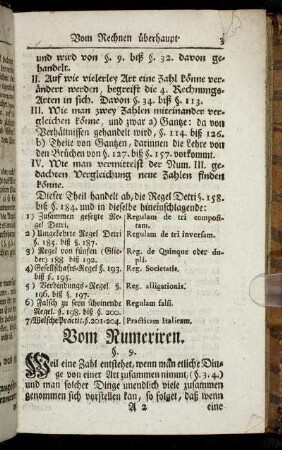 Vom Rechnen überhaupt. 3
und wird von §. 9. biß §. 32. davon ge-
handelt.
II. Auf wie vielerley Art eine Zahl könne ver-
ändert werden, begreift die 4. Rechnungs-
Arten in sich. Davon §. 34. biß §. 113.
III. Wie man zwey Zahlen miteinander ver-
gleichen könne, und zwar a) Gantze: da von
Verhältnissen gehandelt wird, §. 114. biß 126.
b) Theile von Gantzen, darinnen die Lehre von
den Brüchen von §. 127. biß §. 157. vorkommt.
IV. Wie man vermittelst der Num. III. ge-
dachten Vergleichung neue Zahlen finden
könne.
Dieser Theil handelt ab, die Regel Detri §. 158.
biß §. 184. und in dieselbe hineinschlagende:
1) Zusammen gesetzte Re- Regulam de tri composi-
gel Detri. tam.
2) Umgekehrte Regel Detri Regulam de tri inversam.
§. 185. biß §. 187.
3) Regel von fünfen (Glie- Reg. de Quinque oder du-
der) 188 biß 192. pli.
4) Gesellschafts-Regel §. 193. Reg. Societatis.
biß §. 195.
5) Verbindungs-Regel §. Reg. alligationis.
196. biß §. 197.
6) Falsch zu seyn scheinende Regulam falsi.
Regel. §. 198. biß §. 200.
7) Welsche Practic. §. 201-204. Practicam Italicam.
Vom Numeriren.
§. 9.
Weil eine Zahl entstehet, wenn man etliche Din-
ge von einer Art zusammen nimmt, (§. 3. 4.)
und man solcher Dinge unendlich viele zusammen
genommen sich vorstellen kan, so folget, daß wenn
A 2 eine